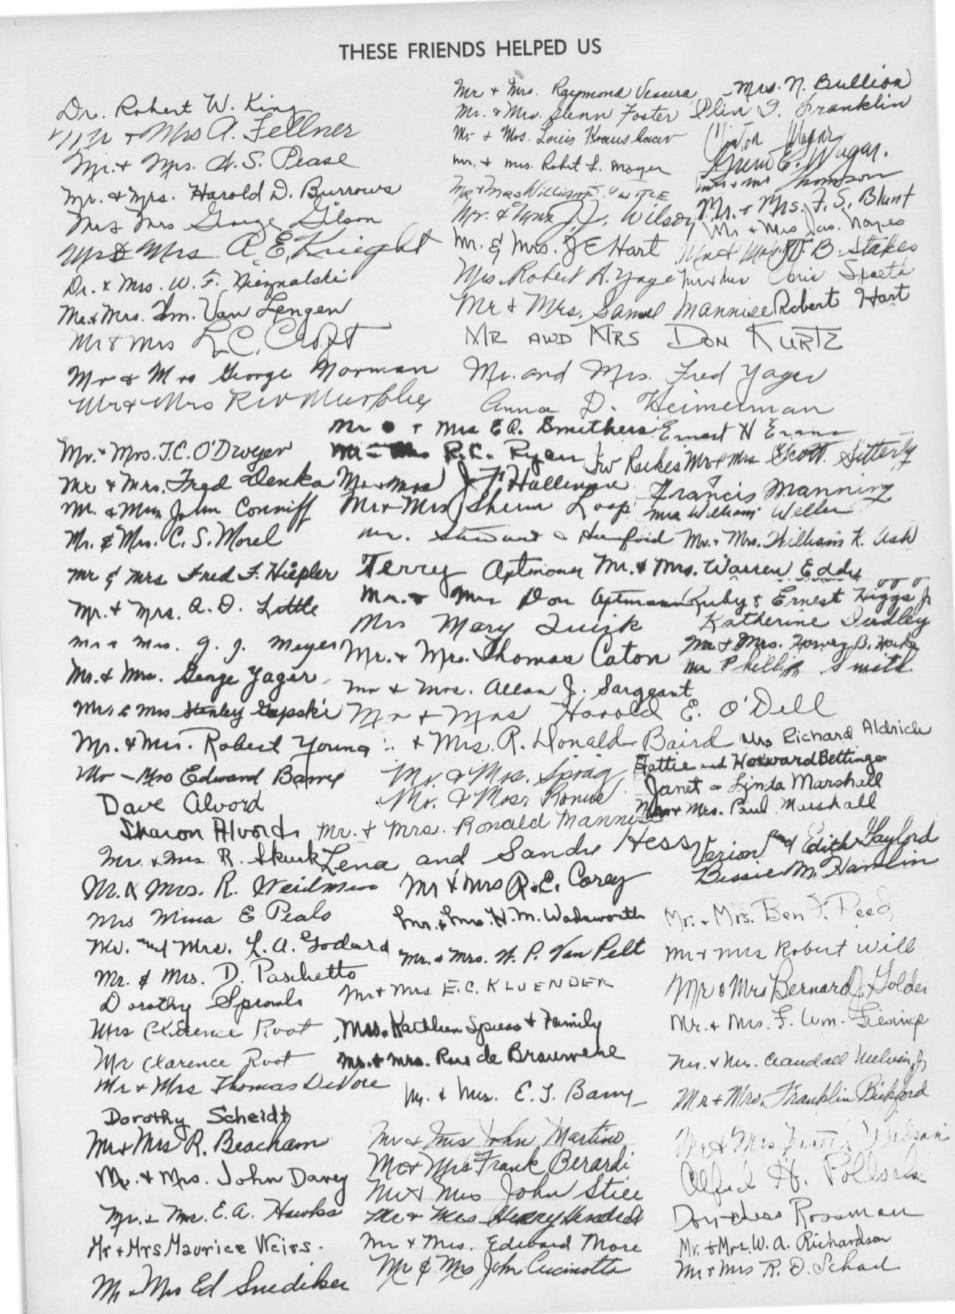 THESE FRIENDS HELPED US
Dr. Robert W. King
Mr + Mrs A. Fellner
Mr. + Mrs. H. S. Pease
Mr. & Mrs. Harold D. Burrows
Mr & Mrs George Gilson
Mr & Mrs A. E. Knight
Dr. & Mrs. W. F.
Mr. & Mrs. Wm. Van Lengen
Mr & Mrs L. C. Croft
Mr & Mrs George Norman
Mr & Mrs Murphy
Mr. & Mrs. Raymond
Mr. & Mrs. Glenn Foster
Mr & Mrs. Louis
Mr. & Mrs. Robt L. Moyer
Mr & Mrs William
Mr. & Mrs J. J. Wilson
Mr. & Mrs. J E Hart
Mrs. Robert A. Yage
Mr & Mrs. Samuel Mannise
MR AND MRS DON KURTZ
Mr. and Mrs. Fred Yager
Anna D. Heimerman
Mrs. N. Bullion
Olin G. Franklin
Clinton Wagar
C. Wagar.
Mr & Mrs Thomson
Mr. & Mrs. F. S. Blunt
Mr & Mrs Jas. Noyes
B. Stakes
Mr & Mrs Spaeta
Robert Hart
Mr. & Mrs. T.C. O'Dwyer
Mr & Mrs. Fred Denka
Mr. & Mrs John Conniff
Mr. & Mrs. C. S. Morel
Mr & Mrs Fred F. Hiepler
Mr. & Mrs. A. D. Little
Mr & Mrs. J. J. Meyer
Mr. & Mrs. George Yager
Mr. & Mrs Stanley
Mr. & Mrs. Robert Young
Mr – Mrs Edward Barry
Dave Alvord
Sharon Alvord
Mr. & Mrs. R.
Mr. & Mrs. R. Weidman
Mrs Mina E. Peals
Mr. and Mrs. L. A. Godard
Mr. & Mrs. D. Paschetto
Dorothy Sprouls
Mrs Clarence Root
Mr Clarence Root
Mr & Mrs Thomas DeVore
Dorothy Scheidt
Mr & Mrs R. Beacham
Mr. & Mrs. John Davey
Mr. & Mrs. E. A. Hawks
Mr + Mrs Maurice Weirs.
Mr & Mrs Ed Snediker
Mr + Mrs E. Q. Smithers
Mr – Mrs R. C. Ryan
Mr & Mrs J. F. Hallenan
Mr & Mrs Loop
Mr. Stewart
Terry Aptmoner
Mr. & Mrs Don
Mrs Mary Quirk
Mr. & Mrs. Thomas Caton
Mr & Mrs. Allan J. Sargeant
Mr & Mrs Harold E. O'Dell
& Mrs. R. Donald Baird
Mr. & Mrs. Sprag
Mr. & Mrs.
Mr. & Mrs. Ronald Mannise
Lena and Sandy Hess
Mr & Mrs R. C. Corey
H. M. Wadsworth
Mr. & Mrs. W. P. Van Pelt
Mr & Mrs E.C. KLUENDER
Mrs. Kathleen Spiess & Family
Mr. & Mrs. Rene de Brauwere
Mr. & Mrs. E. J. Barry
Mr & Mrs John Martino
Mr & Mrs Frank Berardi
Mr & Mrs John Stiee
Mr & Mrs Henry
Mr & Mrs. Edward More
Mr & Mrs John Cucinotta
Ernest H Evans
Mr & Mrs Scott Sitterly
Francis Manning
Mrs William Weller
Mr. & Mrs. William K. Ash
Mr. & Mrs. Warren Eddy
Ruby & Ernest Jr
Katherine Dudley
Mr & Mrs. Harvey B.
Mr Phillip Smith
Mrs Richard Aldrich
Hattie and Howard Bettinger
Janet & Linda Marshall
Mr & Mrs. Paul Marshall
Verion and Edith Gaylord
Bessie M. Hamlin
Mr. & Mrs. Ben F. Reed
Mr & Mrs Robert Will
Mr & Mrs Bernard J. Golder
Mr. & Mrs. F. Wm. Fiesinge
Mr. & Mrs. Crandall Melvin, Jr
Mr & Mrs Franklin Bickford
Mr & Mrs Wilson
Alfred H. Pollock
Rossman
Mr. & Mrs. W. A. Richardson
Mr & Mrs R. D. Schad